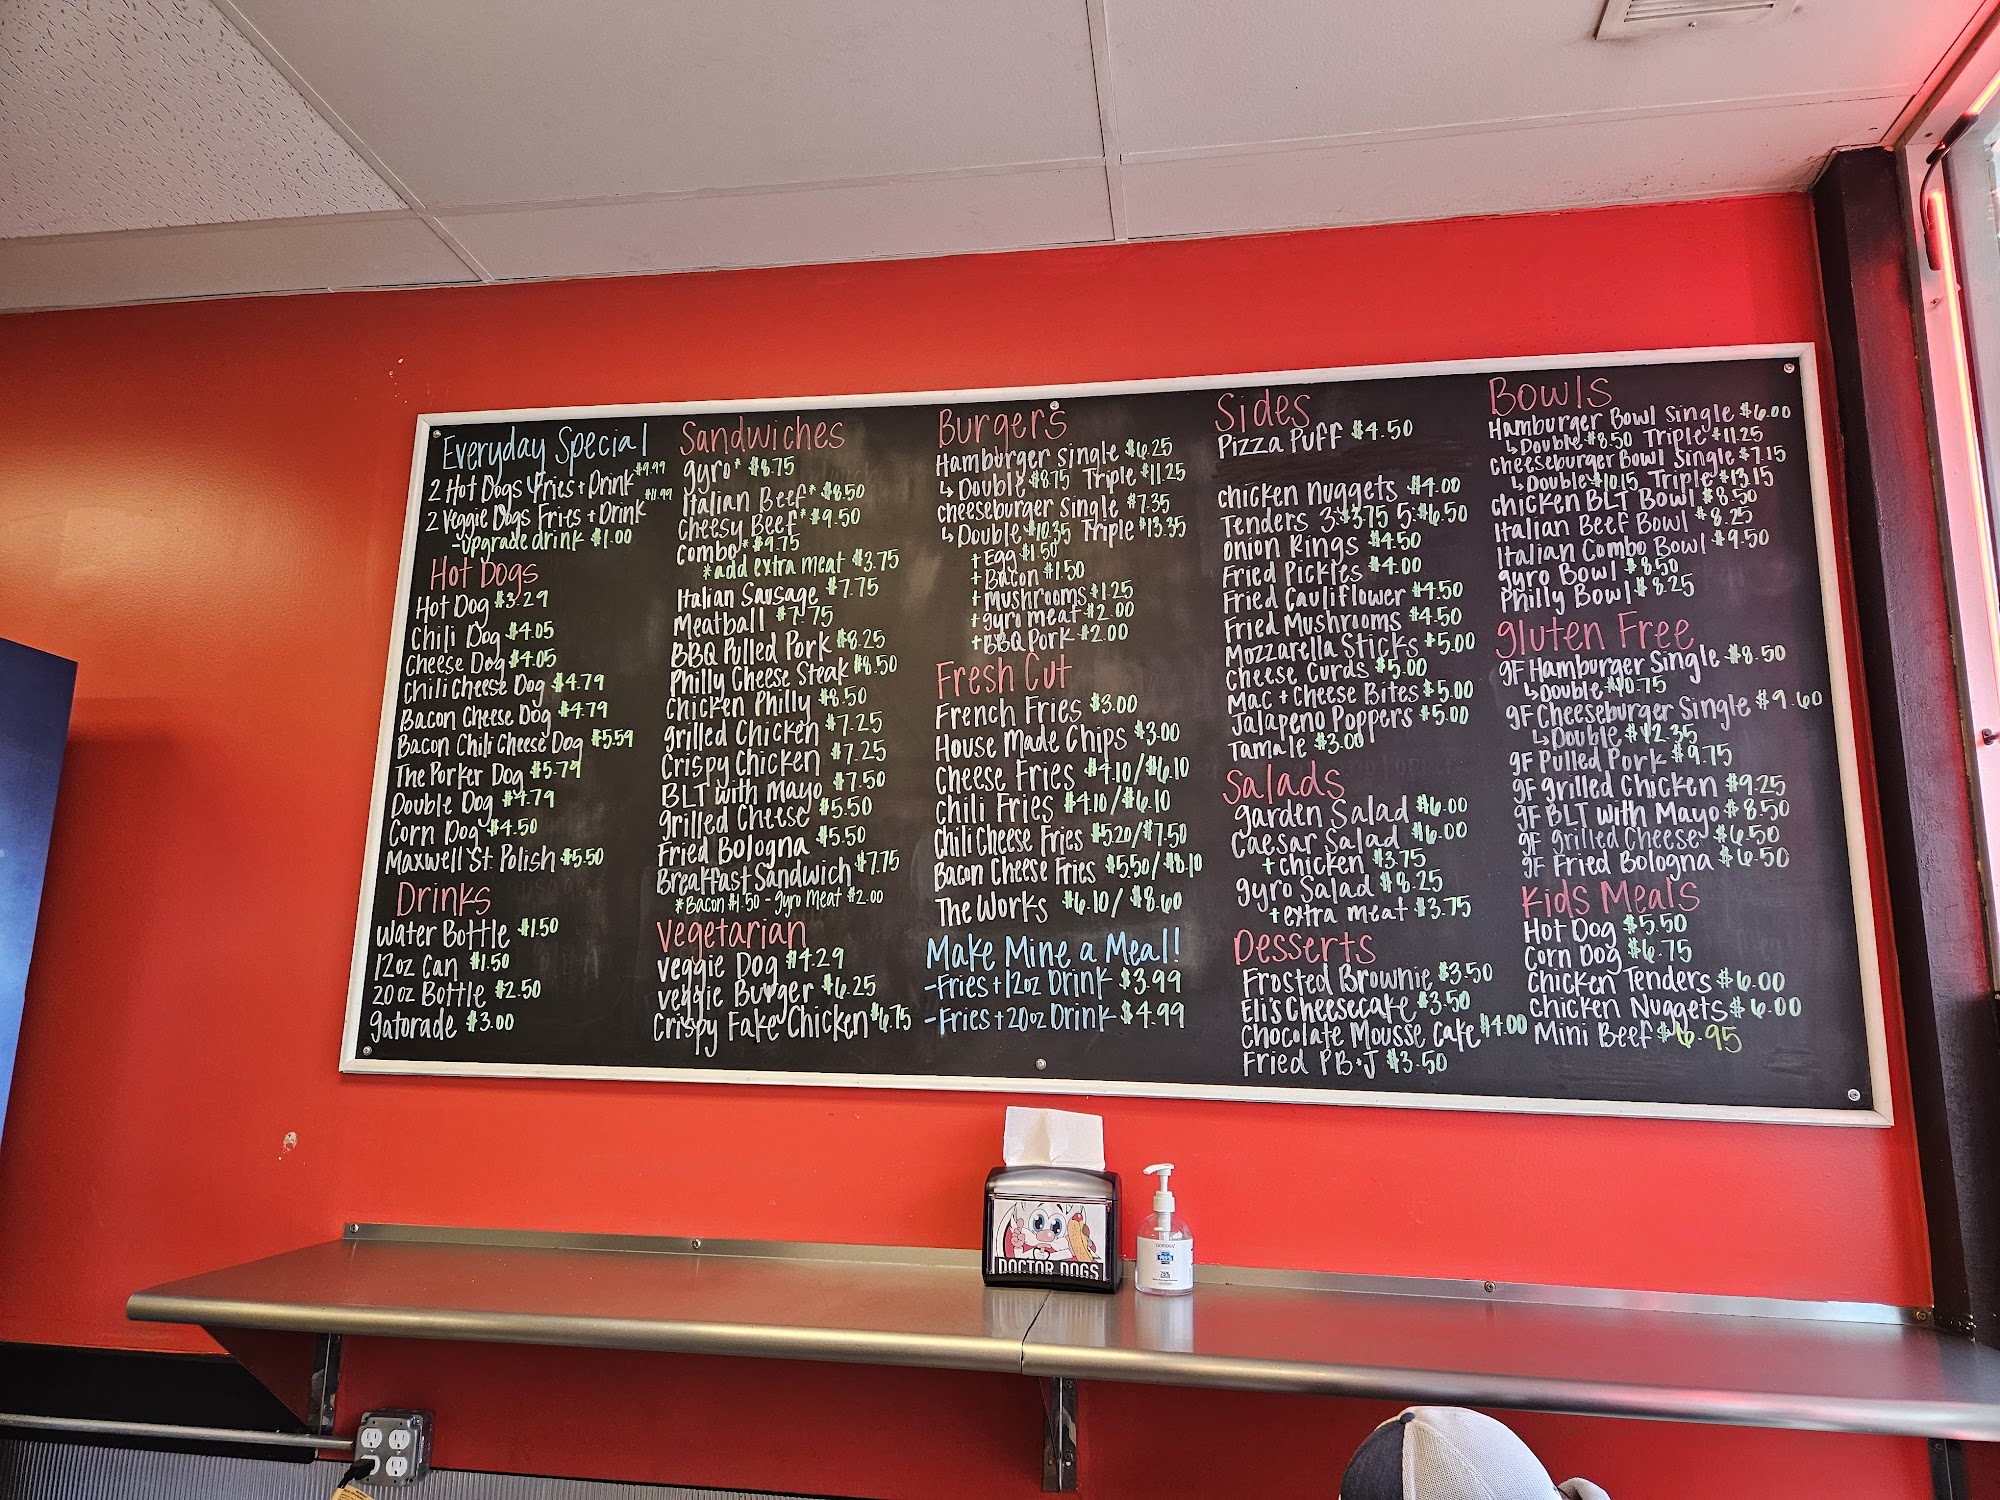 Everyday Special
2 Hot Dogs Fries + Drink $9.99
2 Veggie Dogs Fries + Drink $11.99
- upgrade drink $1.00
Hot Dogs
Hot Dog $3.29
Chili Dog $4.05
Cheese Dog $4.05
Chili Cheese Dog $4.79
Bacon Cheese Dog $4.79
Bacon Chili Cheese Dog $5.59
The Porker Dog $5.79
Double Dog $4.79
Corn Dog $4.50
Maxwell St. Polish $5.50
Drinks
Water Bottle $1.50
12oz Can $1.50
20oz Bottle $2.50
Gatorade $3.00
Sandwiches
Gyro* $8.75
Italian Beef* $8.50
Cheesy Beef* $9.50
Combo* $9.75
*add extra meat $3.75
Italian Sausage $7.75
Meatball $7.75
BBQ Pulled Pork $8.25
Philly Cheese Steak $8.50
Chicken Philly $8.50
Grilled Chicken $7.25
Crispy Chicken $7.25
BLT with Mayo $7.50
Grilled Cheese $5.50
Fried Bologna $5.50
Breakfast Sandwich $7.75
*Bacon $1.50 - gyro meat $2.00
Vegetarian
Veggie Dog $4.29
Veggie Burger $6.25
Crispy Fake Chicken $6.75
Burgers
Hamburger Single $6.25
↳ Double $8.75 Triple $11.25
Cheeseburger Single $7.35
↳ Double $10.35 Triple $13.35
+ Egg $1.50
+ Bacon $1.50
+ Mushrooms $1.25
+ gyro meat $2.00
+ BBQ Pork $2.00
Fresh Cut
French Fries $3.00
House Made Chips $3.00
Cheese Fries $4.10/$6.10
Chili Fries $4.10/$6.10
Chili Cheese Fries $5.20/$7.50
Bacon Cheese Fries $5.50/$8.10
The Works $6.10/$8.60
Make Mine a Meal!
- Fries + 12oz Drink $3.99
- Fries + 20oz Drink $4.99
Sides
Pizza Puff $4.50
Chicken Nuggets $4.00
Tenders 3:$3.75 5:$6.50
Onion Rings $4.50
Fried Pickles $4.00
Fried Cauliflower $4.50
Fried Mushrooms $4.50
Mozzarella Sticks $5.00
Cheese Curds $5.00
Mac + Cheese Bites $5.00
Jalapeno Poppers $5.00
Tamale $3.00
Salads
Garden Salad $6.00
Caesar Salad $6.00
+ chicken $3.75
Gyro Salad $8.25
+ extra meat $3.75
Desserts
Frosted Brownie $3.50
Eli's Cheesecake $3.50
Chocolate Mousse Cake $4.00
Fried PB+J $3.50
Bowls
Hamburger Bowl Single $6.00
↳ Double $8.50 Triple $11.25
Cheeseburger Bowl Single $7.15
↳ Double $10.15 Triple $13.15
Chicken BLT Bowl $8.50
Italian Beef Bowl $8.25
Italian Combo Bowl $9.50
Gyro Bowl $8.50
Philly Bowl $8.25
Gluten Free
GF Hamburger Single $8.50
↳ Double $10.75
GF Cheeseburger Single $9.60
↳ Double $12.35
GF Pulled Pork $9.75
GF Grilled Chicken $9.25
GF BLT with Mayo $8.50
GF Grilled Cheese $6.50
GF Fried Bologna $6.50
Kids Meals
Hot Dog $5.50
Corn Dog $6.75
Chicken Tenders $6.00
Chicken Nuggets $6.00
Mini Beef $6.95
DOCTOR DOGS